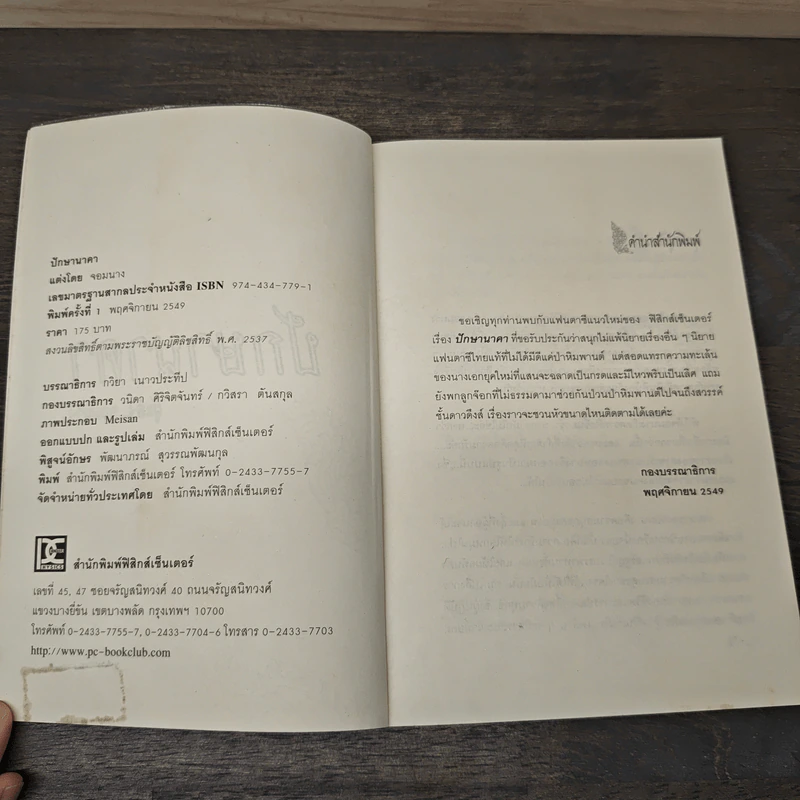 ปักษานาคา
แต่งโดย จอมนาง
เลขมาตรฐานสากลประจำหนังสือ ISBN 974-434-779-1
พิมพ์ครั้งที่ 1 พฤศจิกายน 2549
ราคา 175 บาท
สงวนลิขสิทธิ์ตามพระราชบัญญัติลิขสิทธิ์ พ.ศ. 2537
บรรณาธิการ กวิยา เนาวประทีป
กองบรรณาธิการ วนิดา ศิริจิตจันทร์ / กวิสรา ตันสกุล
ภาพประกอบ Meisan
ออกแบบปก และรูปเล่ม สำนักพิมพ์ฟิสิกส์เซ็นเตอร์
พิสูจน์อักษร พัฒนาภรณ์ สุวรรณพัฒนกุล
พิมพ์ สำนักพิมพ์ฟิสิกส์เซ็นเตอร์ โทรศัพท์ 0-2433-7755-7
จัดจำหน่ายทั่วประเทศโดย สำนักพิมพ์ฟิสิกส์เซ็นเตอร์
PHYSICS CENTER
สำนักพิมพ์ฟิสิกส์เซ็นเตอร์
เลขที่ 45, 47 ซอยจรัญสนิทวงศ์ 40 ถนนจรัญสนิทวงศ์
แขวงบางยี่ขัน เขตบางพลัด กรุงเทพฯ 10700
โทรศัพท์ 0-2433-7755-7, 0-2433-7704-6 โทรสาร 0-2433-7703
http://www.pc-bookclub.com
คำนำสำนักพิมพ์
ขอเชิญทุกท่านพบกับแฟนตาซีแนวใหม่ของ ฟิสิกส์เซ็นเตอร์
เรื่อง ปักษานาคา ที่ขอรับประกันว่าสนุกไม่แพ้นิยายเรื่องอื่น ๆ นิยาย
แฟนตาซีไทยแท้ที่ไม่ได้มีดีแค่ป่าหิมพานต์ แต่สอดแทรกความทะเล้น
ของนางเอกยุคใหม่ที่แสนจะฉลาดเป็นกรดและมีไหวพริบเป็นเลิศ แถม
ยังพกลูกจ๊อกที่ไม่ธรรมดามาช่วยกันป่วนป่าหิมพานต์ไปจนถึงสวรรค์
ชั้นดาวดึงส์ เรื่องราวจะชวนหัวขนาดไหนติดตามได้เลยค่ะ
กองบรรณาธิการ
พฤศจิกายน 2549